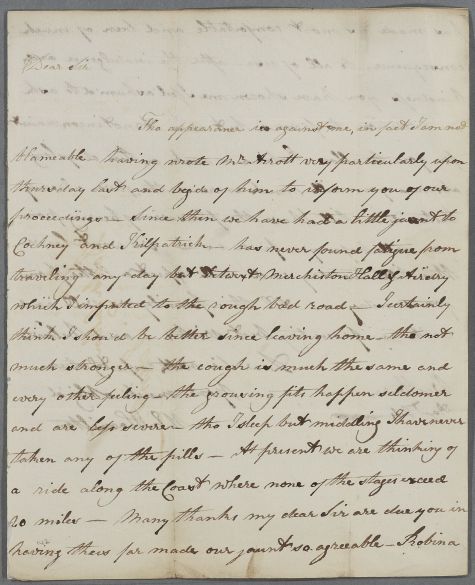 Dear Sir
Tho appearance is against me, in fact I am not
blameable having wrote Mr Arrott very particularly upon
thursday last and beg'd of him to inform you of our
proceedings — Since then we have had a little jaunt to
Cochney and Kilpatrick — has never found fatigue from
traveling any day but betwixt Merchiston Hall & Airdry
which I imputed to the rough bad road — I certainly
think I shou'd be better since leaving home — tho not
much stronger — the cough is much the same and
every other feling — the grousing fits happen seldomer
and are less severe — tho I sleep but middling I have never
taken any of the pills — At present we are thinking of
a ride along the Coast where none of the stages exceed
20 miles — Many thanks my dear Sir are due you in
having thus far made our jaunt so agreeable — Robina